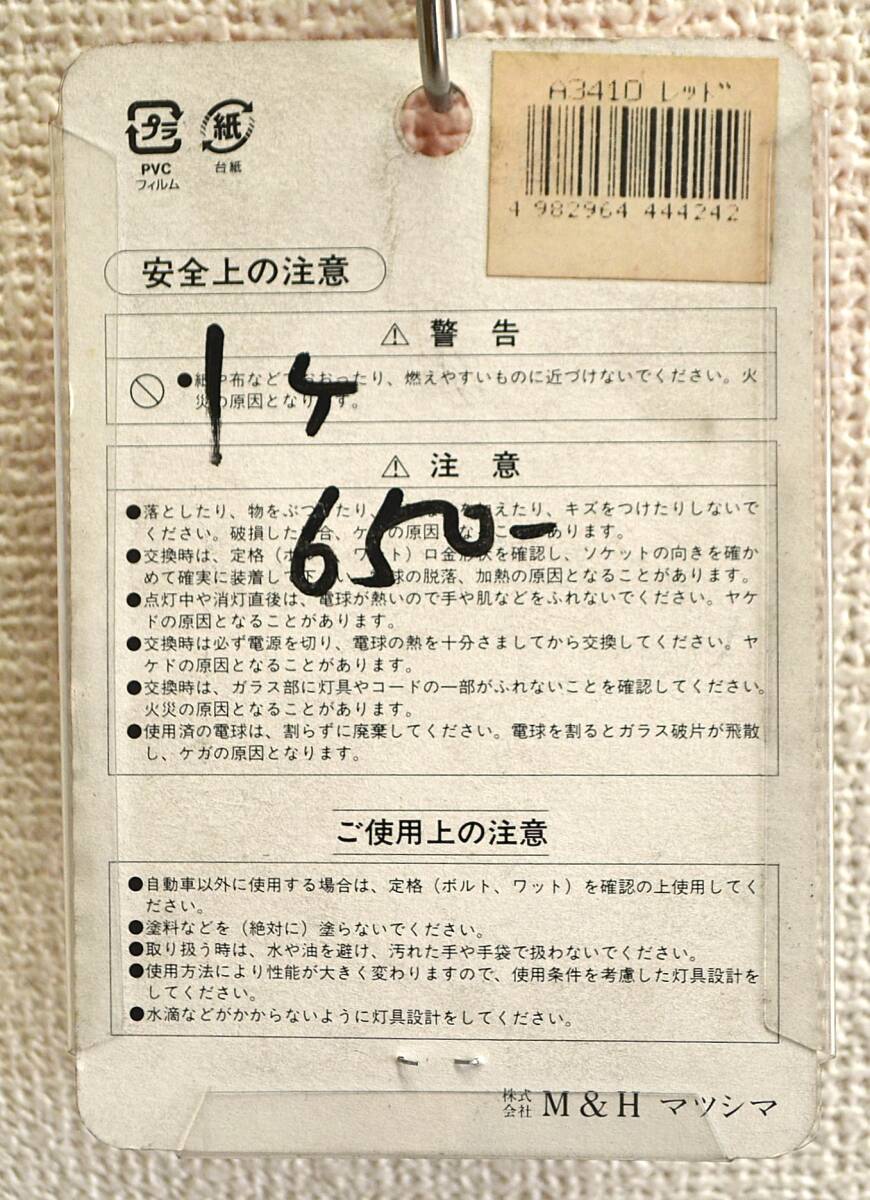 A3410 レッド
4 982964 444242
プラ 紙
PVC 台紙
フィルム
安全上の注意
⚠ 警 告
●紙や布などでおおったり、燃えやすいものに近づけないでください。火
災の原因となります。
1ケ
650-
⚠ 注 意
●落としたり、物をぶつけたり、を加えたり、キズをつけたりしないで
ください。破損した場合、ケガの原因となることがあります。
●交換時は、定格（ボルト、ワット）口金形状を確認し、ソケットの向きを確か
めて確実に装着して下さい。電球の脱落、加熱の原因となることがあります。
●点灯中や消灯直後は、電球が熱いので手や肌などをふれないでください。ヤケ
ドの原因となることがあります。
●交換時は必ず電源を切り、電球の熱を十分さましてから交換してください。ヤ
ケドの原因となることがあります。
●交換時は、ガラス部に灯具やコードの一部がふれないことを確認してください。
火災の原因となることがあります。
●使用済の電球は、割らずに廃棄してください。電球を割るとガラス破片が飛散
し、ケガの原因となります。
ご使用上の注意
●自動車以外に使用する場合は、定格（ボルト、ワット）を確認の上使用してく
ださい。
●塗料などを（絶対に）塗らないでください。
●取り扱う時は、水や油を避け、汚れた手や手袋で扱わないでください。
●使用方法により性能が大きく変わりますので、使用条件を考慮した灯具設計を
してください。
●水滴などがかからないように灯具設計をしてください。
株式会社 M&H マツシマ